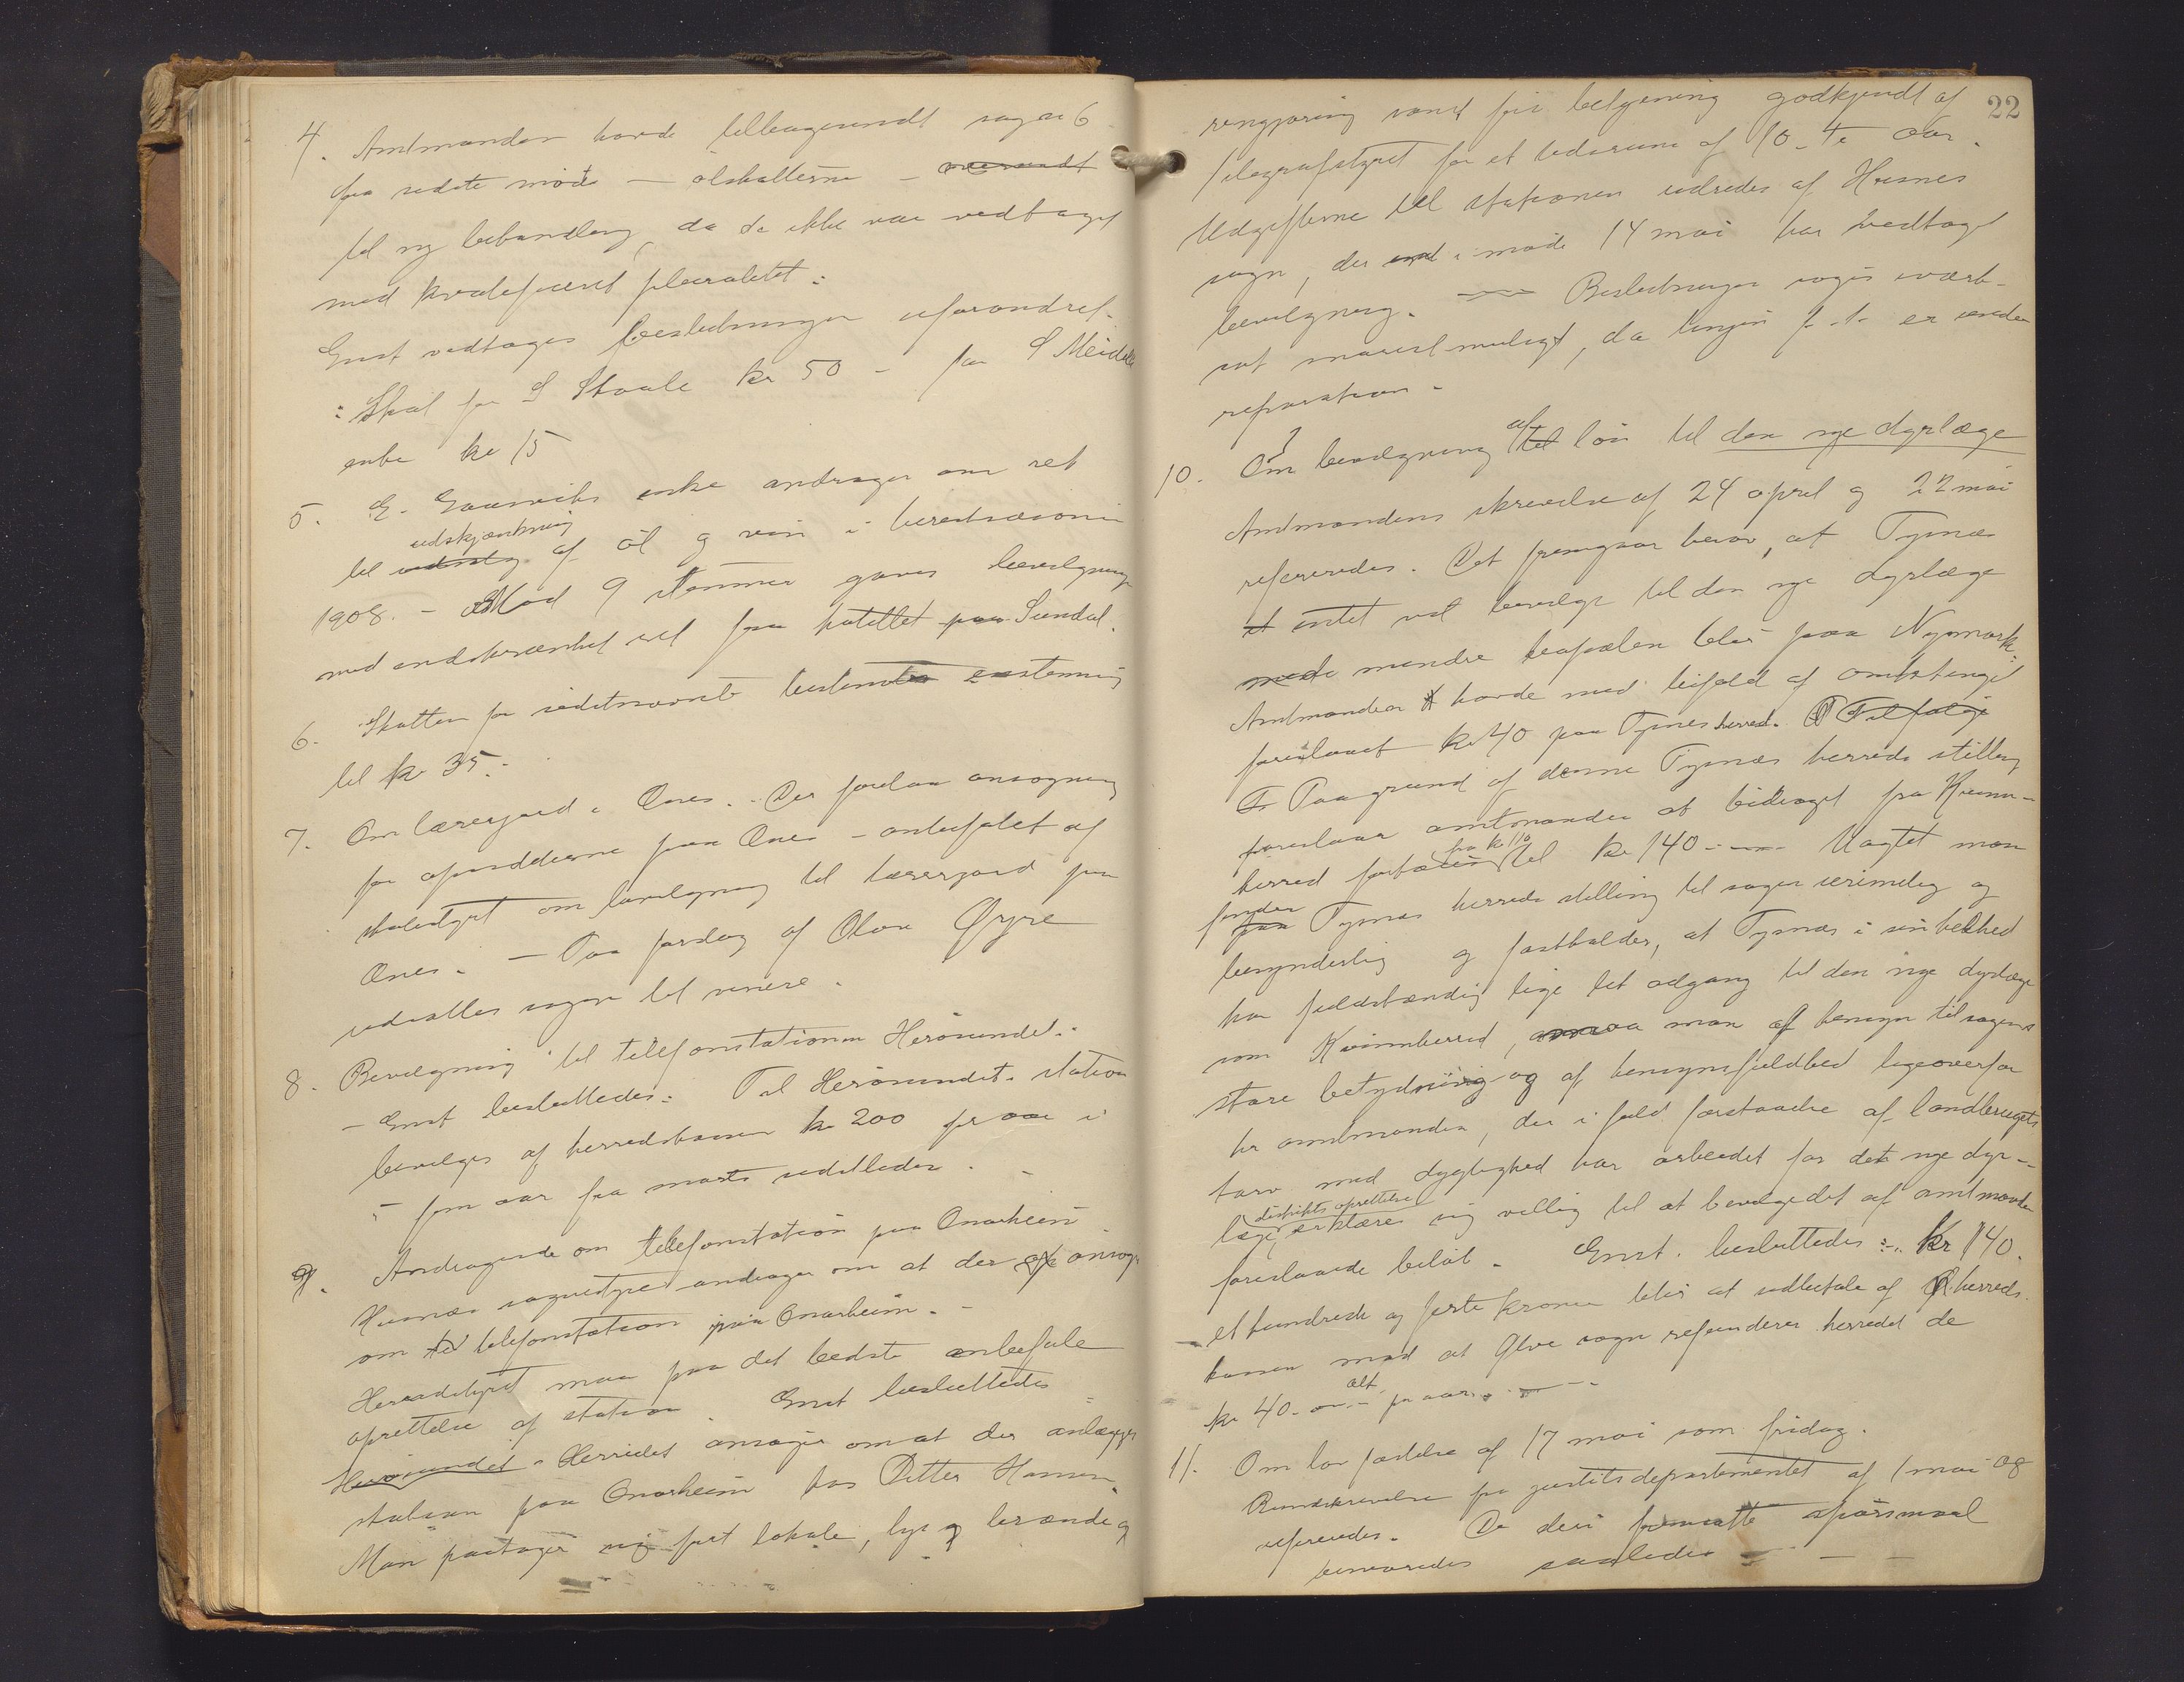 4. Amtmanden havde tilbagesendt sag nr 6
fra sidste møde — ølskatterne — oversendt
til ny behandling, da de ikke var vedtaget
med kvalificeret pluralitet:
Enst vedtages beslutningen uforandret.
: Skat for S Skaale kr 50 - for S Meidels
enke kr 15
5. E. Gaasviks enke andrager om ret
udskjænkning
til udsalg af øl og vin i beredsæsonen
1908. - Mod 9 stemmer gaves bevilgning
med indskrænket ret fra hotellet paa Sundal.
6. Skatten for sidstnævnte bestemtes enstemmig
til kr 35.-
7. Om lærerjord i Ænes. - Der forelaa ansøgning
fra opsidderne paa Ænes - anbefalet af
skolestyret om bevilgning til lærerjord paa
Ænes. - Paa forslag af Olav Øyre
udsattes sagen til senere.
8. Bevilgning til telefonstationen Herøsundet.
- Enst besluttedes: Til Herøsundet station
bevilges af herredskassen kr 200 pr aar i
- fem aar fra marts saaledes. -
9. Andragende om telefonstation paa Onarheim.
Husnes sognestyre andrager om at der ansøges
om telefonstation paa Onarheim. -
Herredstyret maa paa det bedste anbefale
oprettelse af station. Enst besluttedes
Herøsundet - Herredet ansøger om at der anlægges
station paa Onarheim hos Petter Hansen.
Man paatager sig frit lokale, lys og brænde og
22
rengjøring samt fri betjening godkjendt af
telegrafstyret for et tidsrum af 10 - ti aar.
Udgifterne til stationen udredes af Husnes
sogn, der i møde 14 mai har vedtaget
bevilgning. — Beslutningen søges iværk-
sat snarest muligt, da linjen f. t. er under
reparation.
10. Om bevilgning af til løn til den nye dyrlæge
Amtmandens skrivelse af 24 april og 22 mai
refereredes. Det fremgaar herav, at Tysnæs
et intet vil bevilge til den nye dyrlæge
med mindre bopælen blir paa Nymark.
Amtmanden havde med bifald af amtstinget
foreslaaet kr 40 paa Tysnes herred. Tilfølge
Paa grund af denne Tysnæs herreds stilling
foreslaar amtmanden at bidraget fra Kvinn-
fra kr 110
herred forhøies til kr 140 - - Uagtet man
finder
paa Tysnæs herreds stilling til sagen urimelig og
besynderlig og fastholder, at Tysnæs i sin helhed
har fuldstændig lige let adgang til den nye dyrlæge
som Kvinnherred, maa man af hensyn til sagens
store betydning og af hensynsfuldhed ligeoverfor
hr amtmanden, der i fuld forstaaelse af landbrugets
tarv med dygtighed har arbeidet for det nye dyr-
distrikts oprettelse
læge, erklære sig villig til at bevilge det af amtmanden
foreslaaede beløb. Enst. besluttedes: kr 140.
- et hundrede og førti kroner blir at udbetale af herreds-
kassen mod at Ølve sogn refunderer herredet de
kr 40 - alt pr aar. -
11. Om lov fæstelse af 17 mai som fridag.
Rundskrivelse fra justitsdepartementet af 1 mai 08
refereredes. De deri fremsatte spørsmaal
besvaredes saaledes - - -